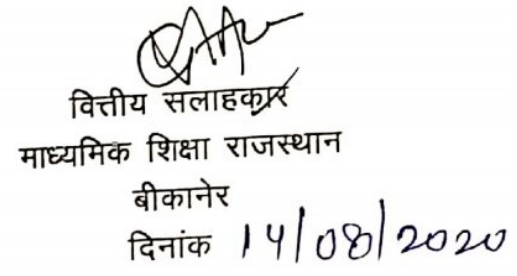 वित्तीय सलाहकार
माध्यमिक शिक्षा राजस्थान
बीकानेर
दिनांक 14/08/2020